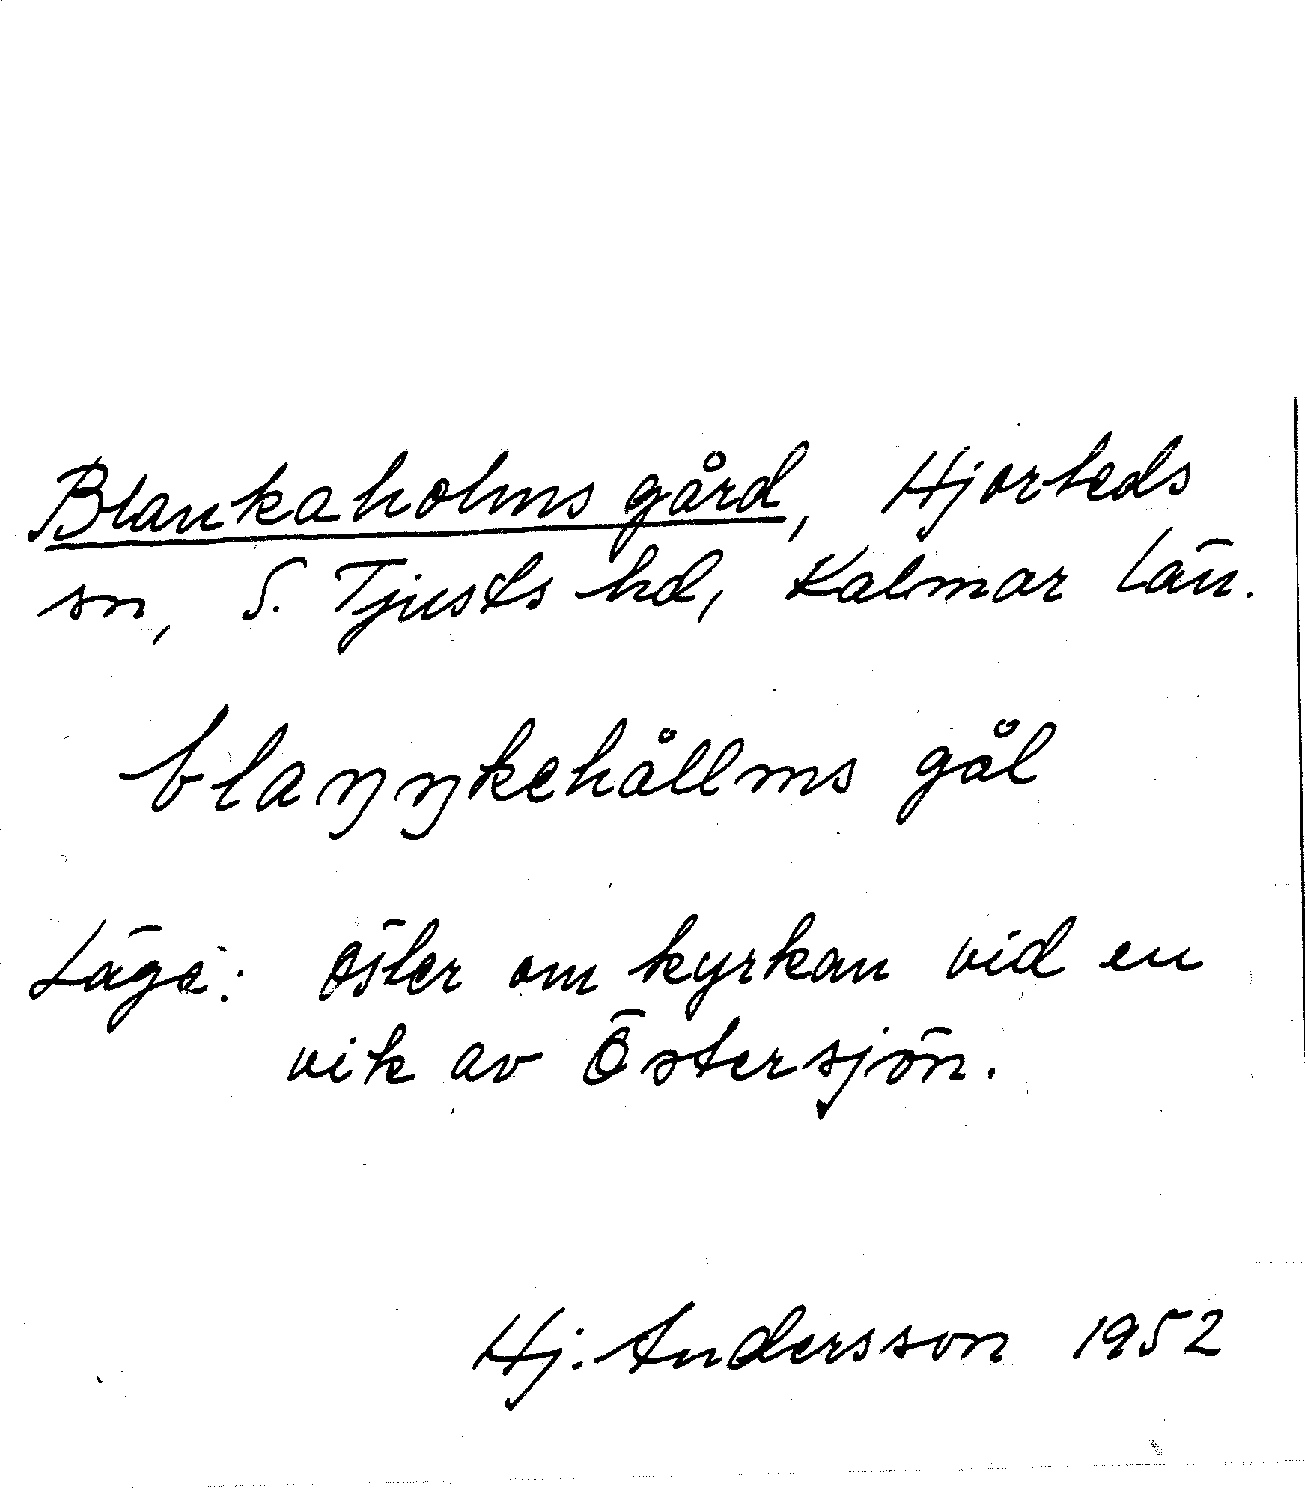 Blankaholms gård, Hjorteds
sn, S. Tjusts hd, Kalmar län.
blaŋŋkehållms gål
Läge: öster om kyrkan vid en
vik av Östersjön.
Hj. Andersson 1952